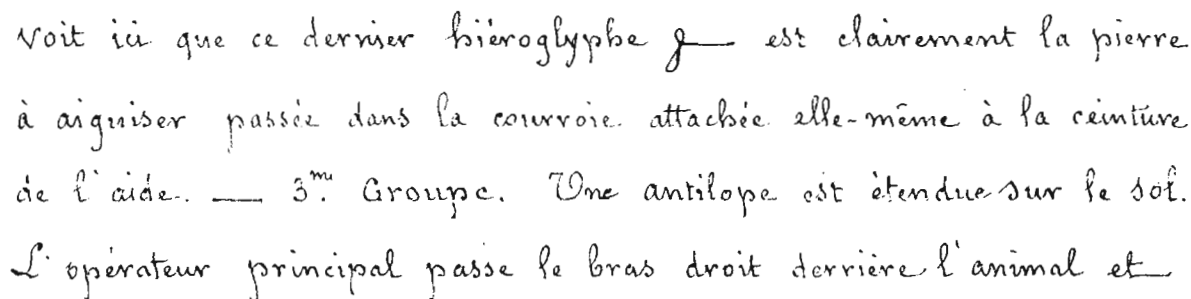 voit ici que ce dernier hiéroglyphe est clairement la pierre
à aiguiser passée dans la courroie attachée elle-même à la ceinture
de l'aide. — 3me. Groupe. Une antilope est étendue sur le sol.
L'opérateur principal passe le bras droit derrière l'animal et